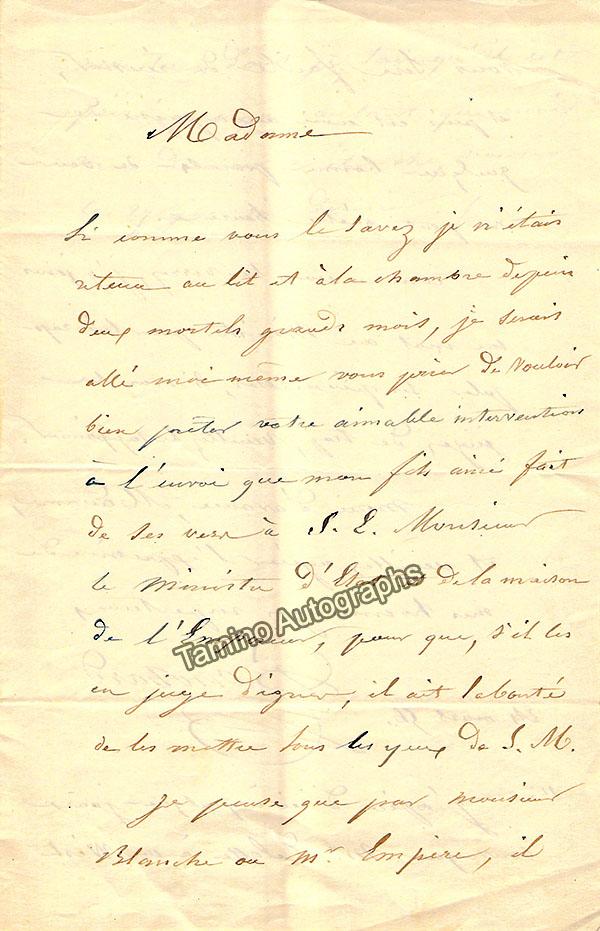 Madame
Si comme vous le savez je n'étais
retenu au lit et à la chambre depuis
deux mortels grands mois, je serais
allé moi même vous prier de vouloir
bien prêter votre aimable intervention
à l'envoi que mon fils ainé fait
de ses vers à S. E. Monsieur
le Ministre d'Etat et de la maison
de l'Empereur, pour que, s'il les
en juge dignes, il ait la bonté
de les mettre sous les yeux de S. M.
Je pense que par Monsieur
Blanche ou Mr. Empère, il
Tamino Autographs